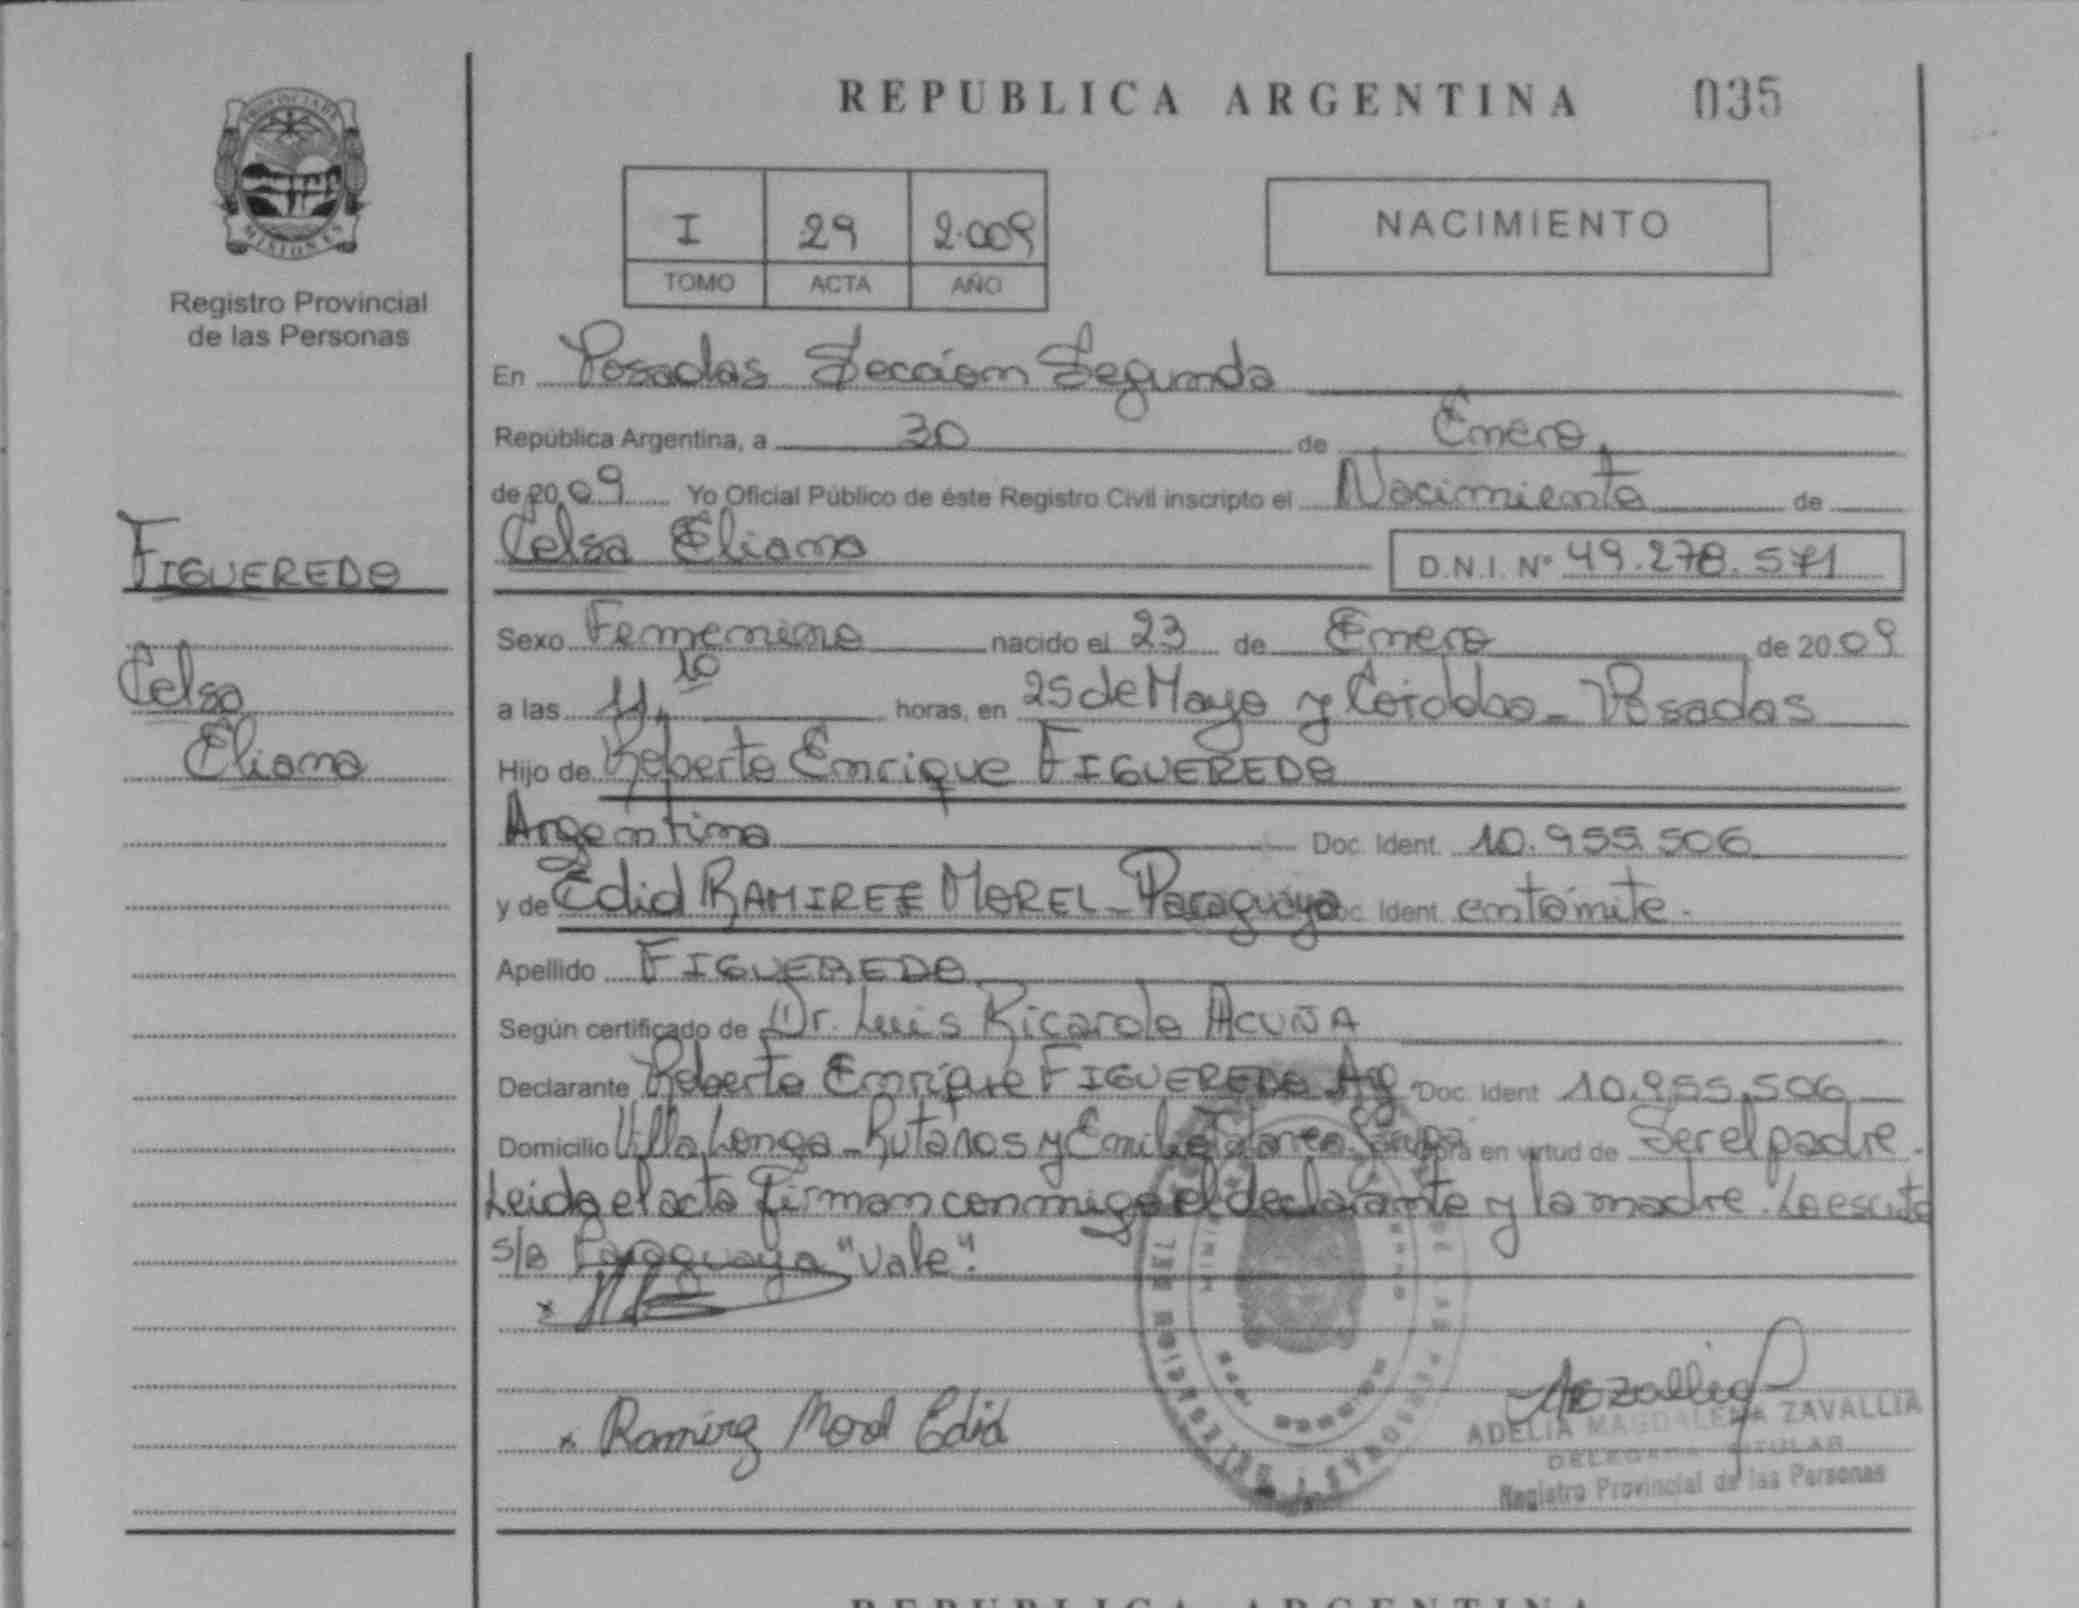 REPUBLICA ARGENTINA 035
PROVINCIA DE
MISIONES
Registro Provincial
de las Personas
I 29 2.009
TOMO ACTA AÑO
NACIMIENTO
En Posadas Sección Segunda
República Argentina, a 30 de Enero,
de 20 09 Yo Oficial Público de éste Registro Civil inscripto el Nacimiento de
FIGUEREDO
Celsa
Eliana
Celsa Eliana D.N.I. Nº 49.278.571
Sexo Femenino nacido el 23 de Enero de 20 09
a las 11,10 horas, en 25 de Mayo y Córdoba - Posadas
Hijo de Roberto Enrique FIGUEREDO
Argentino Doc. Ident. 10.955.506
y de Edid RAMIREZ MOREL - Paraguaya Doc. Ident. en trámite.
Apellido FIGUEREDO
Según certificado de Dr. Luis Ricardo ACUÑA
Declarante Roberto Enrique FIGUEREDO Arg Doc. Ident 10.955.506
Domicilio Villa Longa - Ruta Nos y en virtud de Ser el padre.
Leida el acta firman conmigo el declarante y la madre. Lo escrito
s/B Paraguaya "Vale".
x Ramirez Morel Edid
ADELIA MAGDALENA ZAVALLIA
DELEGADA TITULAR
Registro Provincial de las Personas
REPUBLICA ARGENTINA